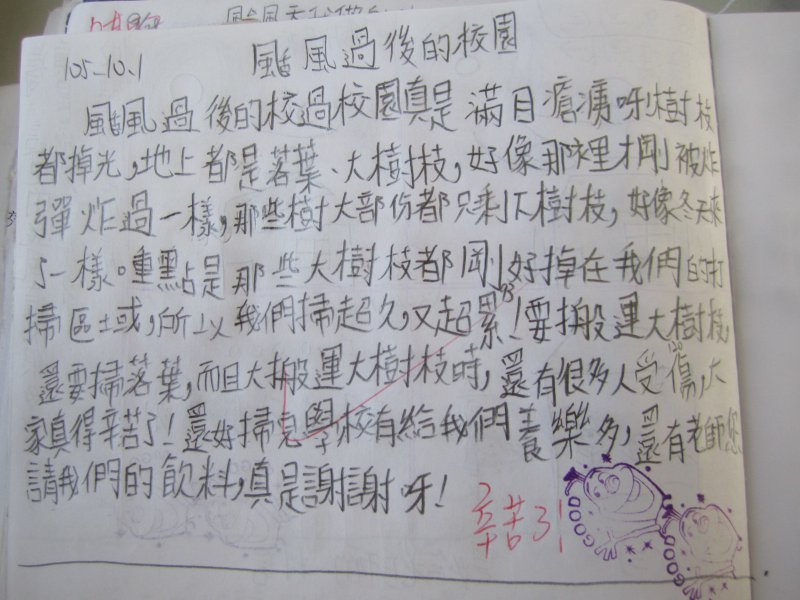 105.10.1 颱風過後的校園
颱風過後的校過校園真是滿目瘡溑呀!樹枝
都掉光,地上都是落葉、大樹枝,好像那裡才剛被炸
彈炸過一樣,那些樹大部份都只剩下樹枝,好像冬天來
了一樣。重點是那些大樹枝都剛好掉在我們的打
掃區域,所以我們掃超久,又超累!要搬運大樹枝,
還要掃落葉,而且大搬運大樹枝時,還有很多人受傷,大
家真得辛苦了!還好掃完學校有給我們養樂多,還有老師您
請我們的飲料,真是謝謝呀!
辛苦了!
GOOD
GOOD